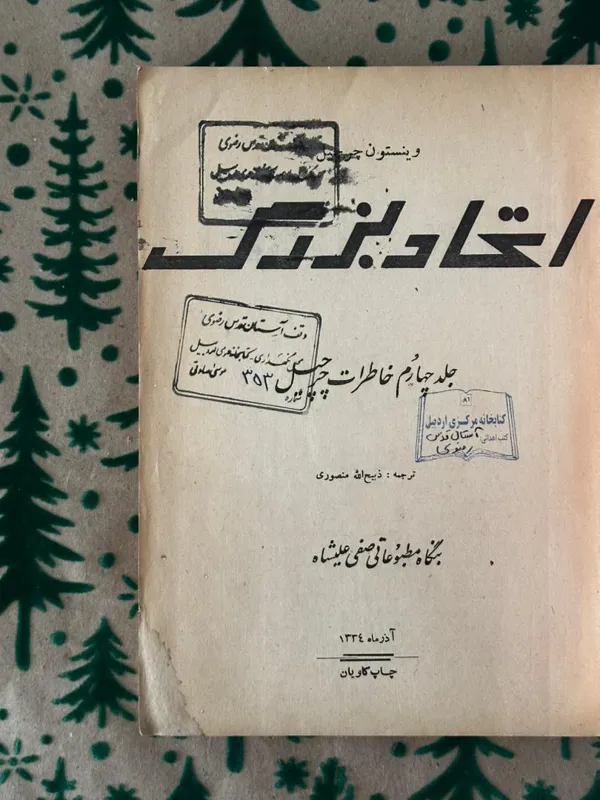 وینستون چرچیل
اتحاد بزرگ
وقف آستان قدس رضوی
شماره ۳۵۳
جلد چهارم خاطرات چرچیل
۸۱
کتابخانه مرکزی اردبیل
کتب اهدائی آستان قدس
رضوی
ترجمه : ذبیح‌الله منصوری
بنگاه مطبوعاتی صفی علیشاه
آذر ماه ۱۳۳۴
چاپ کاویان